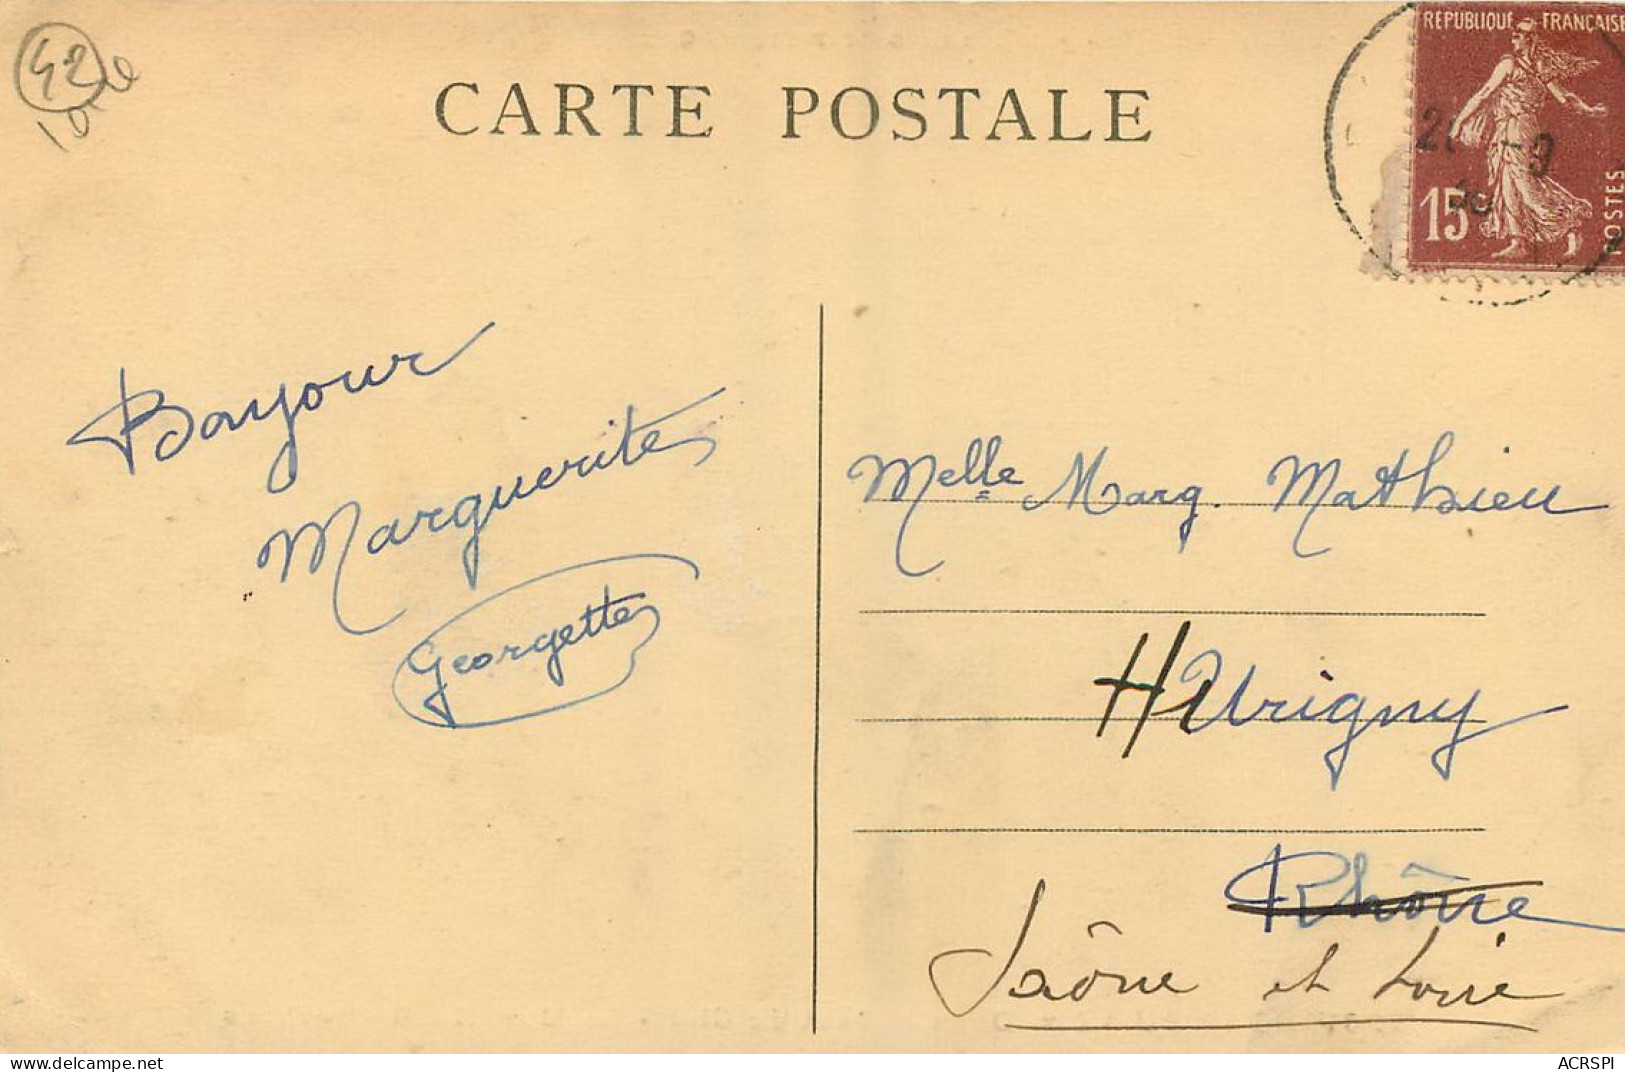 42
CARTE POSTALE
REPUBLIQUE FRANÇAISE
15
POSTES
Bonjour
Marguerite
Georgette
Melle Marg. Mathieu
Hurigny
Rhône
Saône et Loire
www.delcampe.net
ACRSPI